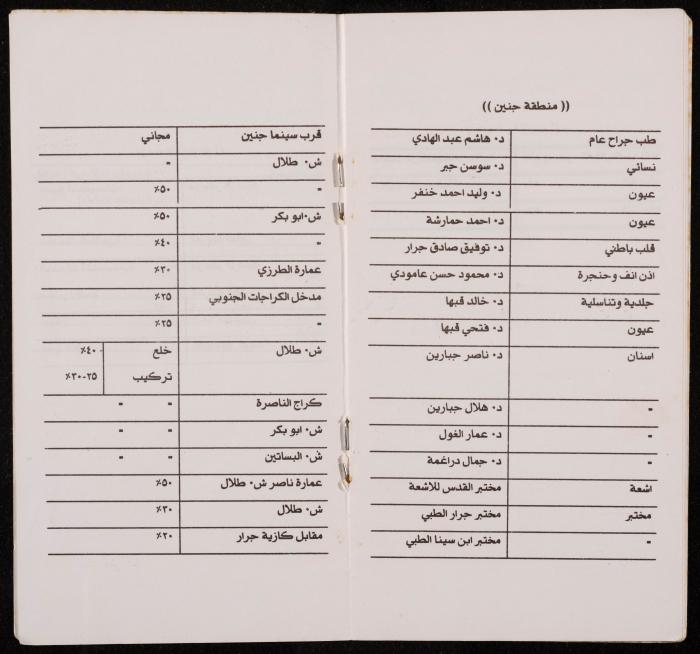 (( منطقة جنين ))
طب جراح عام د. هاشم عبد الهادي
نسائي د. سوسن جبر
عيون د. وليد احمد خنفر
عيون د. احمد حمارشة
قلب باطني د. توفيق صادق جرار
اذن انف وحنجرة د. محمود حسن عامودي
جلدية وتناسلية د. خالد قبها
عيون د. فتحي قبها
اسنان د. ناصر جبارين
" د. هلال جبارين
" د. عمار الغول
" د. جمال دراغمة
اشعة مختبر القدس للاشعة
مختبر مختبر جرار الطبي
" مختبر ابن سينا الطبي
قرب سينما جنين مجاني
ش. طلال "
" ٥٠٪
ش.ابو بكر ٥٠٪
" ٤٠٪
عمارة الطرزي ٣٠٪
مدخل الكراجات الجنوبي ٢٥٪
" ٢٥٪
ش. طلال خلع ٤٠٪
تركيب ٢٥-٣٠٪
كراج الناصرة " "
ش. ابو بكر " "
ش. البساتين " "
عمارة ناصر ش. طلال ٥٠٪
ش. طلال ٣٠٪
مقابل كازية جرار ٢٠٪